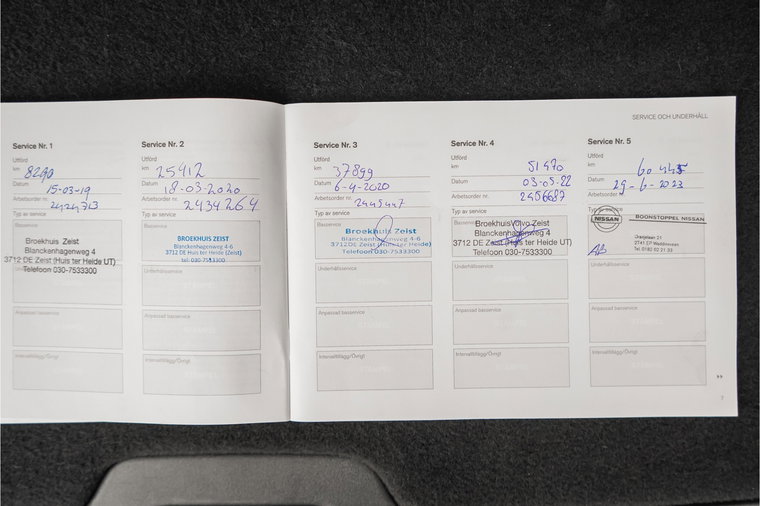 SERVICE OCH UNDERHÅLL
Service Nr. 1
Utförd
km 8290
Datum 15-03-19
Arbetsorder nr. 2424713
Typ av service
Broekhuis Zeist
Blanckenhagenweg 4
3712 DE Zeist (Huis ter Heide UT)
Telefoon 030-7533300
Underhållsservice
Anpassad basservice
Intervalltillägg/Övrigt
Service Nr. 2
Utförd
km 25412
Datum 18-03-2020
Arbetsorder nr. 2434264
Typ av service
BROEKHUIS ZEIST
Blanckenhagenweg 4-6
3712 DE Huis ter Heide (Zeist)
tel: 030-7533300
Underhållsservice
Anpassad basservice
Intervalltillägg/Övrigt
Service Nr. 3
Utförd
km 37899
Datum 6-4-2020
Arbetsorder nr. 2445447
Typ av service
Basservice
Broekhuis Zeist
Blanckenhagenweg 4-6
3712 DE Zeist (Huis ter Heide)
Telefoon 030-7533300
Underhållsservice
Anpassad basservice
Intervalltillägg/Övrigt
Service Nr. 4
Utförd
km 51470
Datum 03-05-22
Arbetsorder nr. 2456687
Typ av service
Basservice
Broekhuis Volvo Zeist
Blanckenhagenweg 4
3712 DE Zeist (Huis ter Heide UT)
Telefoon 030-7533300
Underhållsservice
Anpassad basservice
Intervalltillägg/Övrigt
Service Nr. 5
Utförd
km 60445
Datum 29-6-2023
Arbetsorder nr.
Typ av service
NISSAN
BOONSTOPPEL NISSAN
Oranjelaan 21
2741 EP Waddinxveen
Tel. 0182 62 21 33
AB
Underhållsservice
Anpassad basservice
Intervalltillägg/Övrigt
»
7